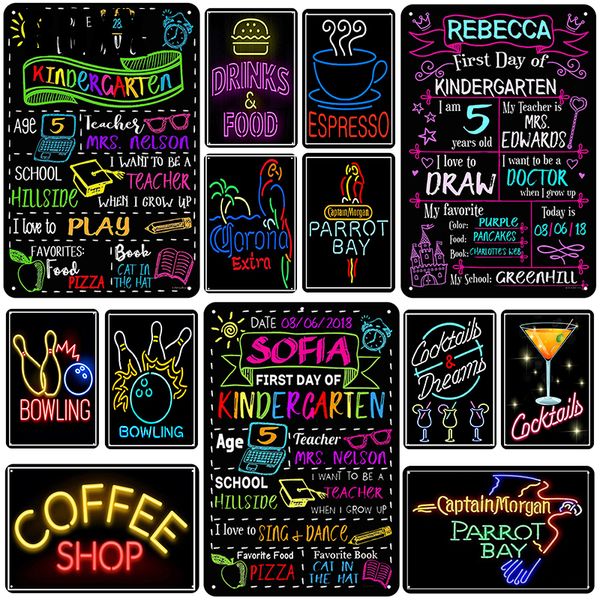 28
KINDERGARTEN
Age 5
Teacher
MRS. NELSON
SCHOOL
HILLSIDE
I WANT TO BE A
TEACHER
WHEN I GROW UP
I love to PLAY
FAVORITES:
Food
PIZZA
Book
CAT IN
THE HAT
DRINKS
&
FOOD
ESPRESSO
Corona
Extra
Captain Morgan
PARROT
BAY
REBECCA
First Day of
KINDERGARTEN
I am
5
years old
My Teacher is
MRS.
EDWARDS
I love to
DRAW
I want to be a
DOCTOR
when I grow up
My favorite
Color: PURPLE
Food: PANCAKES
Book: CHARLOTTE'S WEB
Today is
08/06/18
My School: GREENHILL
BOWLING
BOWLING
DATE 08/06/2018
SOFIA
FIRST DAY OF
KINDERGARTEN
Age 5
Teacher
MRS. NELSON
SCHOOL
HILLSIDE
I WANT TO BE A
TEACHER
WHEN I GROW UP
I love to SING & DANCE
Favorite Food
PIZZA
Favorite Book
CAT IN
THE HAT
Cocktails
&
Dreams
Cocktails
COFFEE
SHOP
Captain Morgan
PARROT
BAY